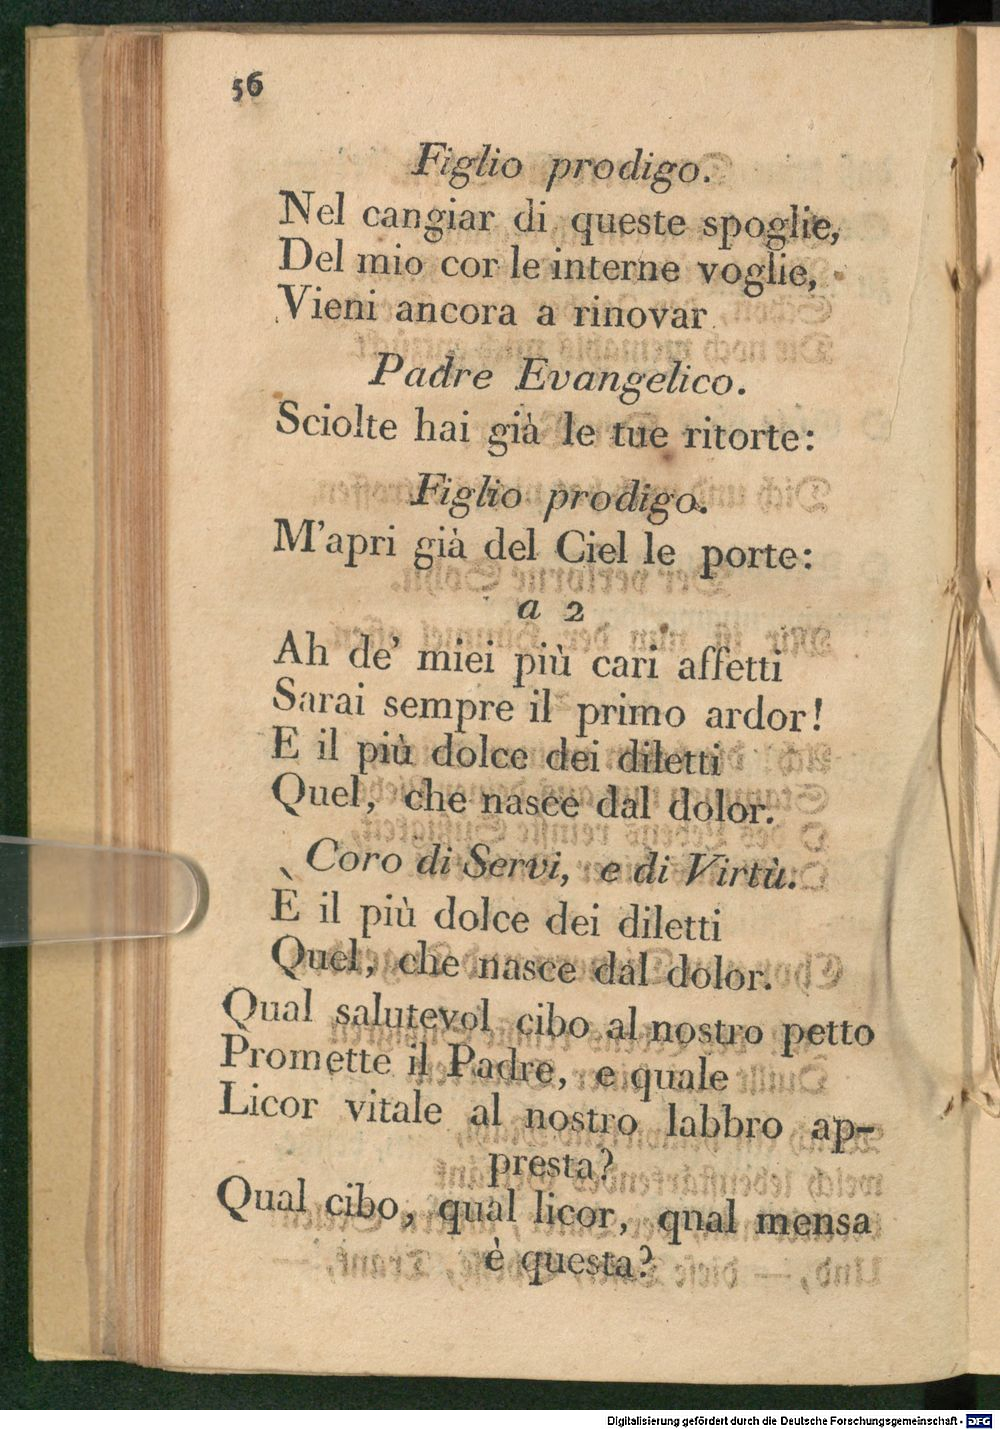 56
Figlio prodigo.
Nel cangiar di queste spoglie,
Del mio cor le interne voglie,
Vieni ancora a rinovar
Padre Evangelico.
Sciolte hai già le tue ritorte:
Figlio prodigo.
M'apri già del Ciel le porte:
a 2
Ah de' miei più cari affetti
Sarai sempre il primo ardor!
E il più dolce dei diletti
Quel, che nasce dal dolor.
Coro di Servi, e di Virtù.
È il più dolce dei diletti
Quel, che nasce dal dolor.
Qual salutevol cibo al nostro petto
Promette il Padre, e quale
Licor vitale al nostro labbro ap-
presta?
Qual cibo, qual licor, qnal mensa
è questa?
Digitalisierung gefördert durch die Deutsche Forschungsgemeinschaft - DFG